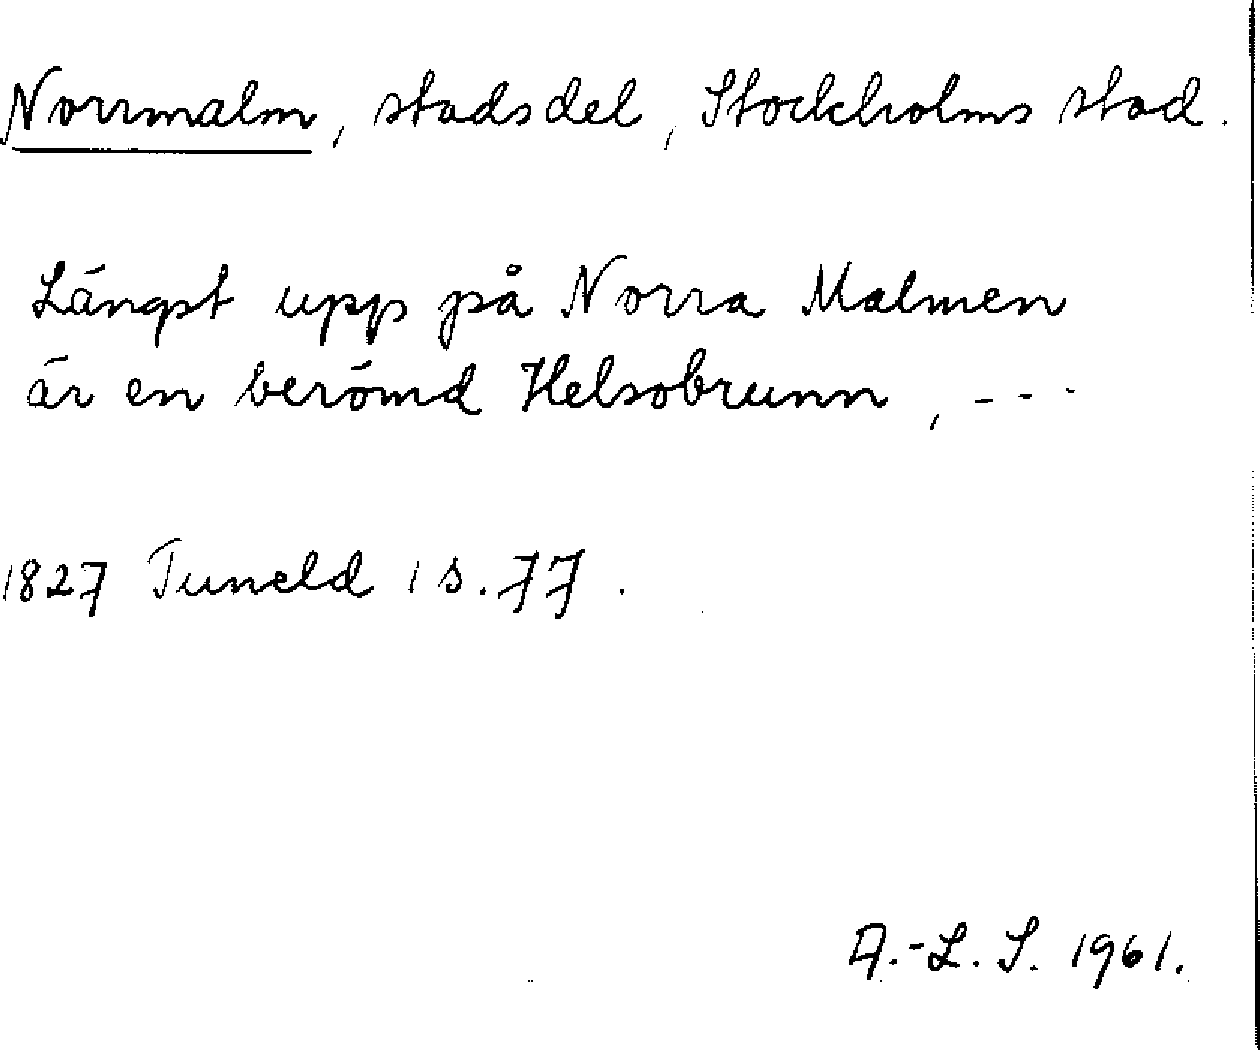 Norrmalm, stadsdel, Stockholms stad.
Längst upp på Norra Malmen
är en berömd Helsobrunn, - - -
1827 Tuneld 1 s. 77.
A.-L. S. 1961.